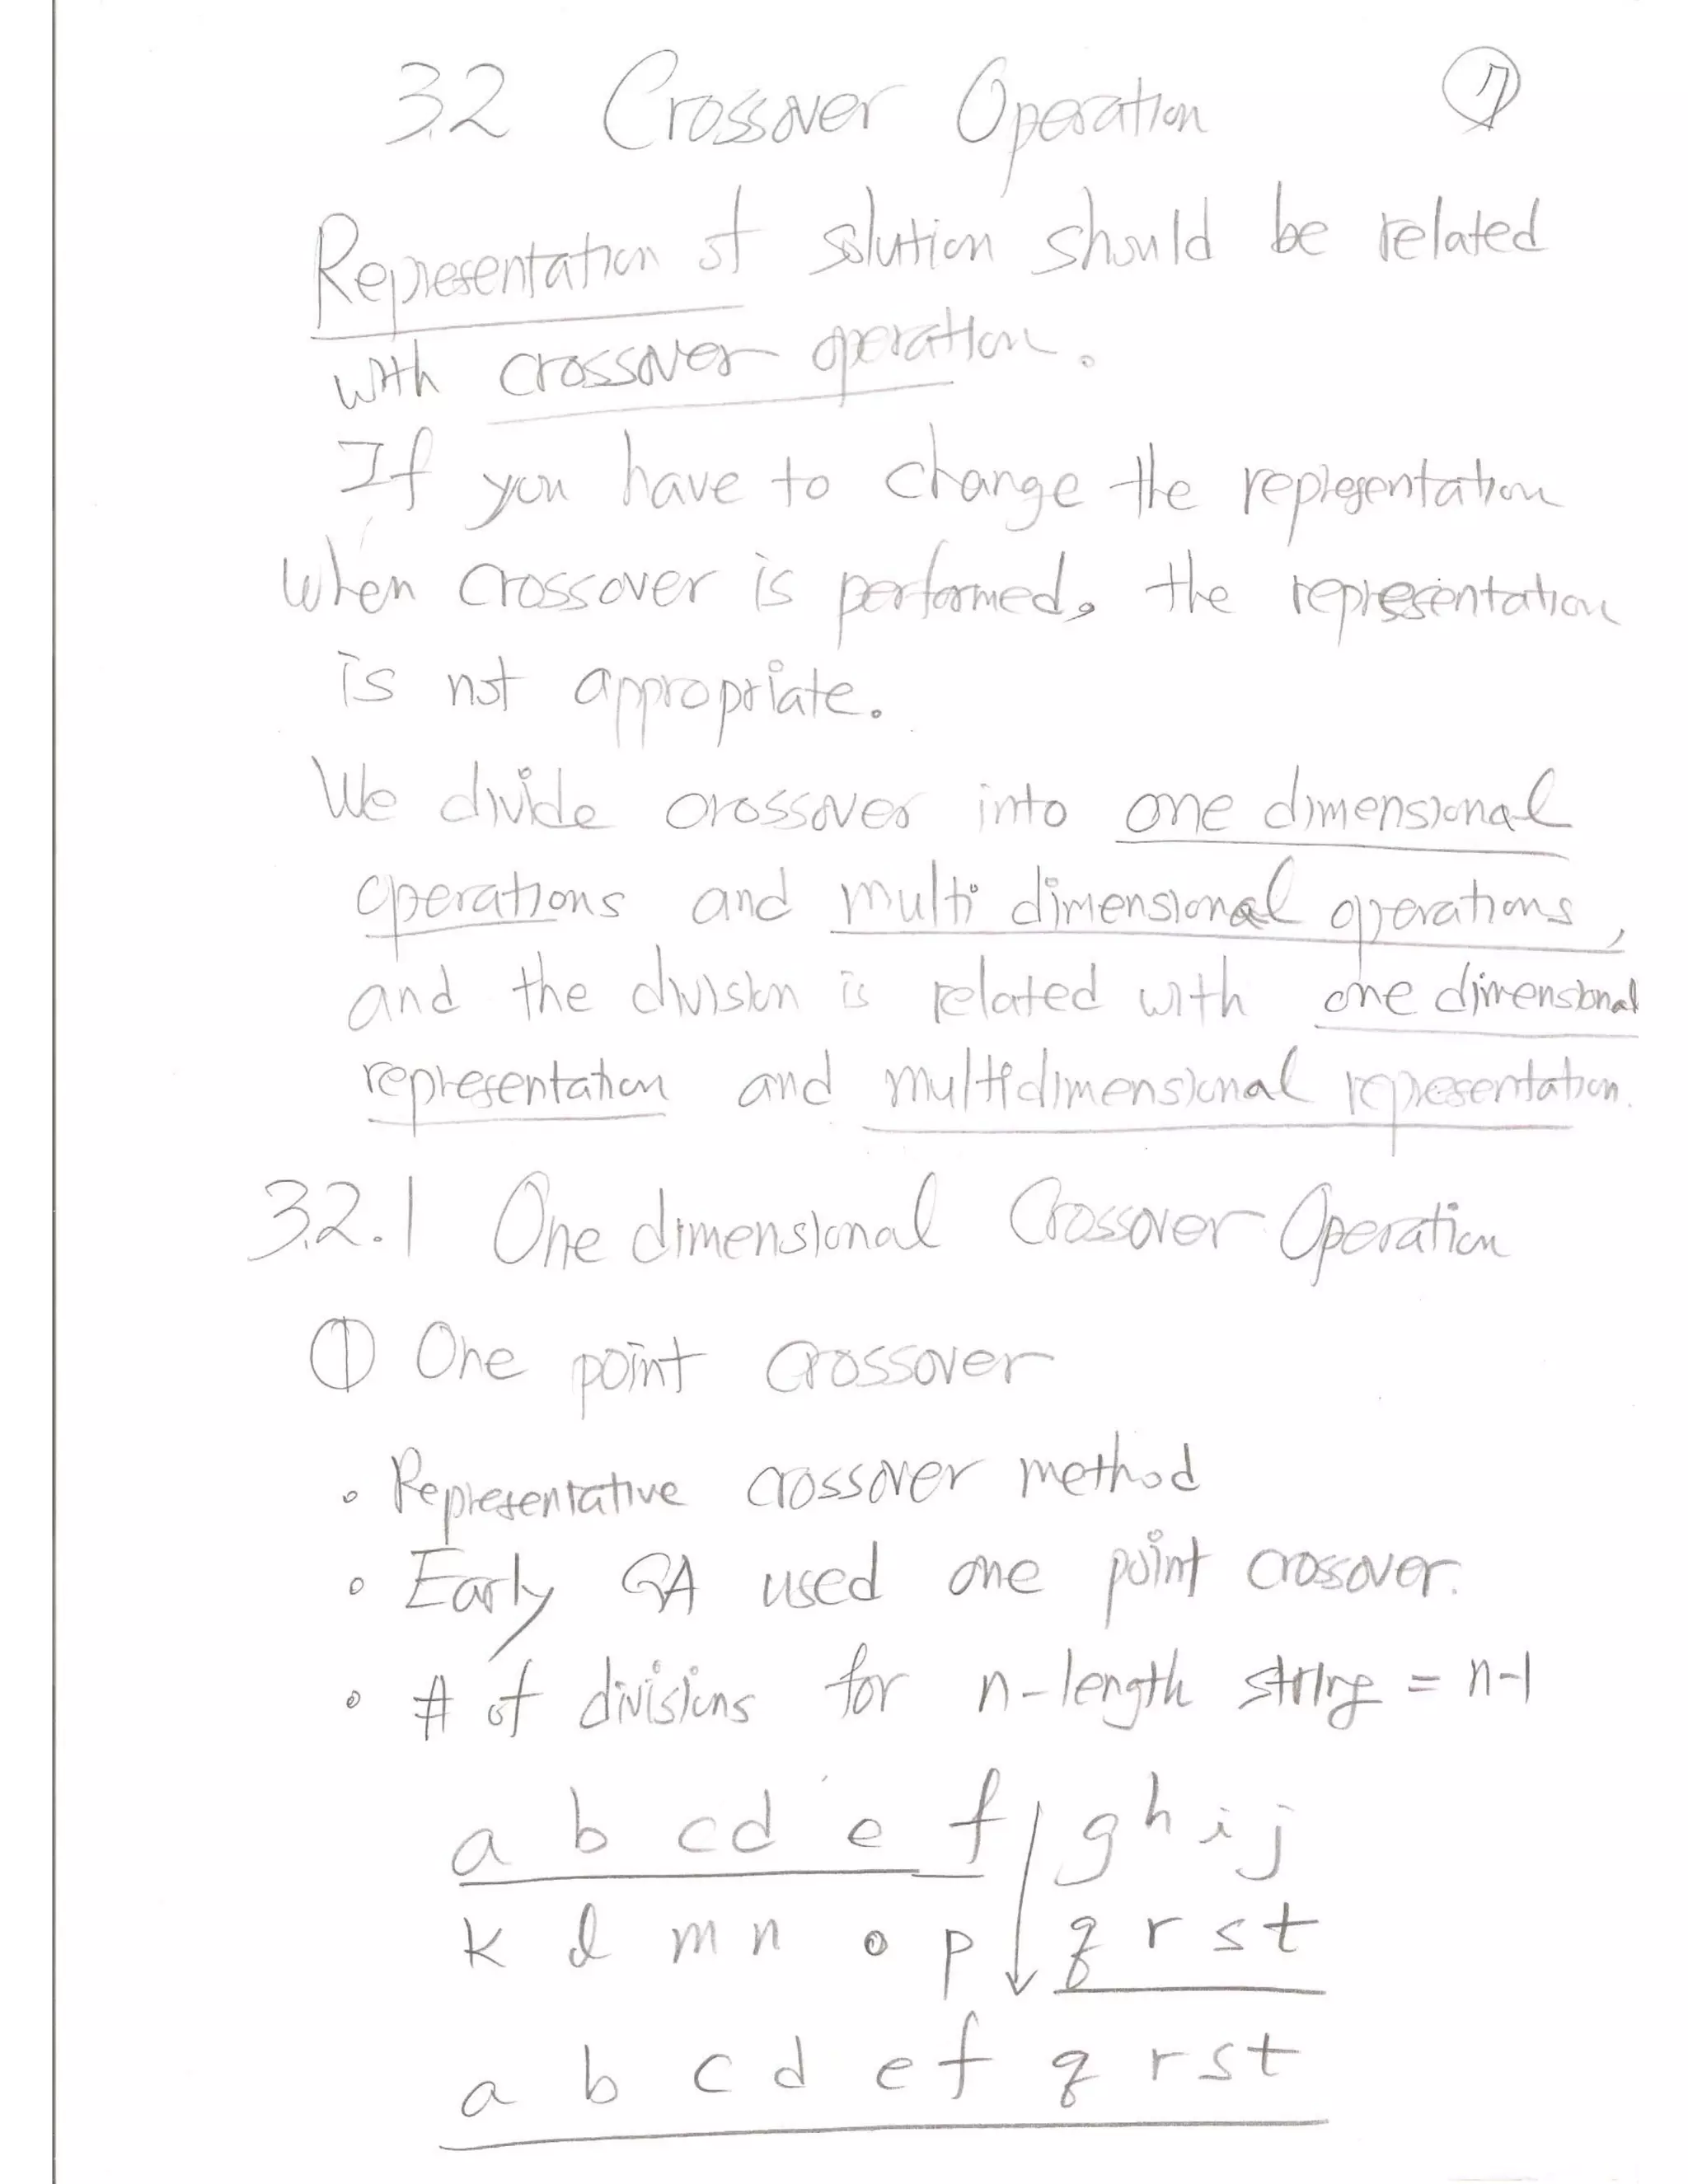 3.2 Crossover Operation ⑦
Representation of solution should be related
with crossover operation.
If you have to change the representation
when crossover is performed, the representation
is not appropriate.
We divide crossover into one dimensional
operations and multi dimensional operations,
and the division is related with one dimensional
representation and multidimensional representation.
3.2.1 One dimensional Crossover Operation
① One point crossover
• Representative crossover method
• Early GA used one point crossover.
• # of divisions for n-length string = n-1
a b c d e f g h i j
k l m n o p q r s t
a b c d e f q r s t